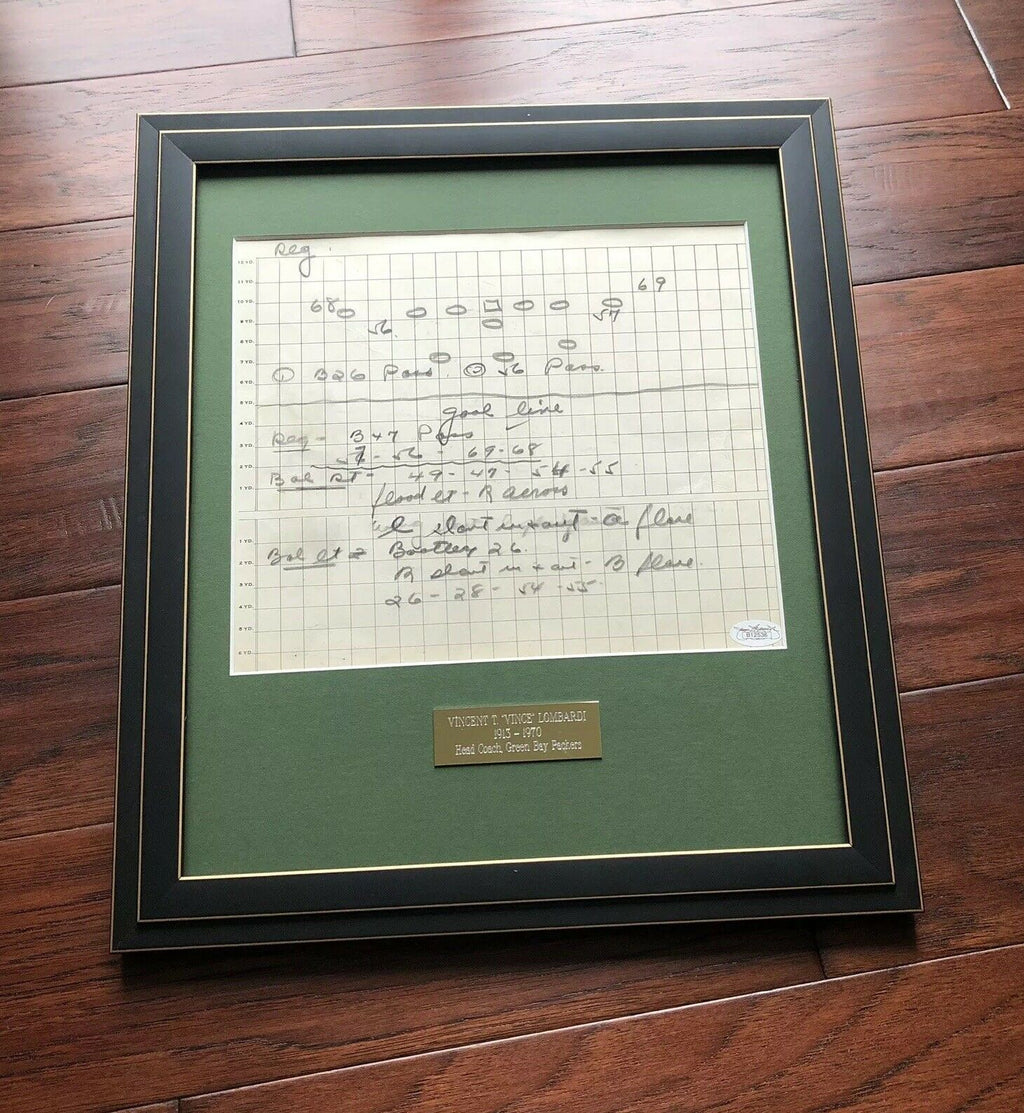 Reg.
12 YD.
11 YD.
10 YD.
9 YD.
8 YD.
7 YD.
6 YD.
5 YD.
4 YD.
3 YD.
2 YD.
1 YD.
1 YD.
2 YD.
3 YD.
4 YD.
5 YD.
6 YD.
68 69
56. 57
① B26 Pass. ② 56 Pass.
goal line
Reg - B+7 Pass
57 - 56 - 69-68
RT - 49 - 47 - 54 - 55
flood Lt - R across
short in + out - a flare
Lt = 26.
R short in + out - B flare.
26 - 28 - 54 - 55
B12538
VINCENT T. "VINCE" LOMBARDI
1913 - 1970
Head Coach, Green Bay Packers